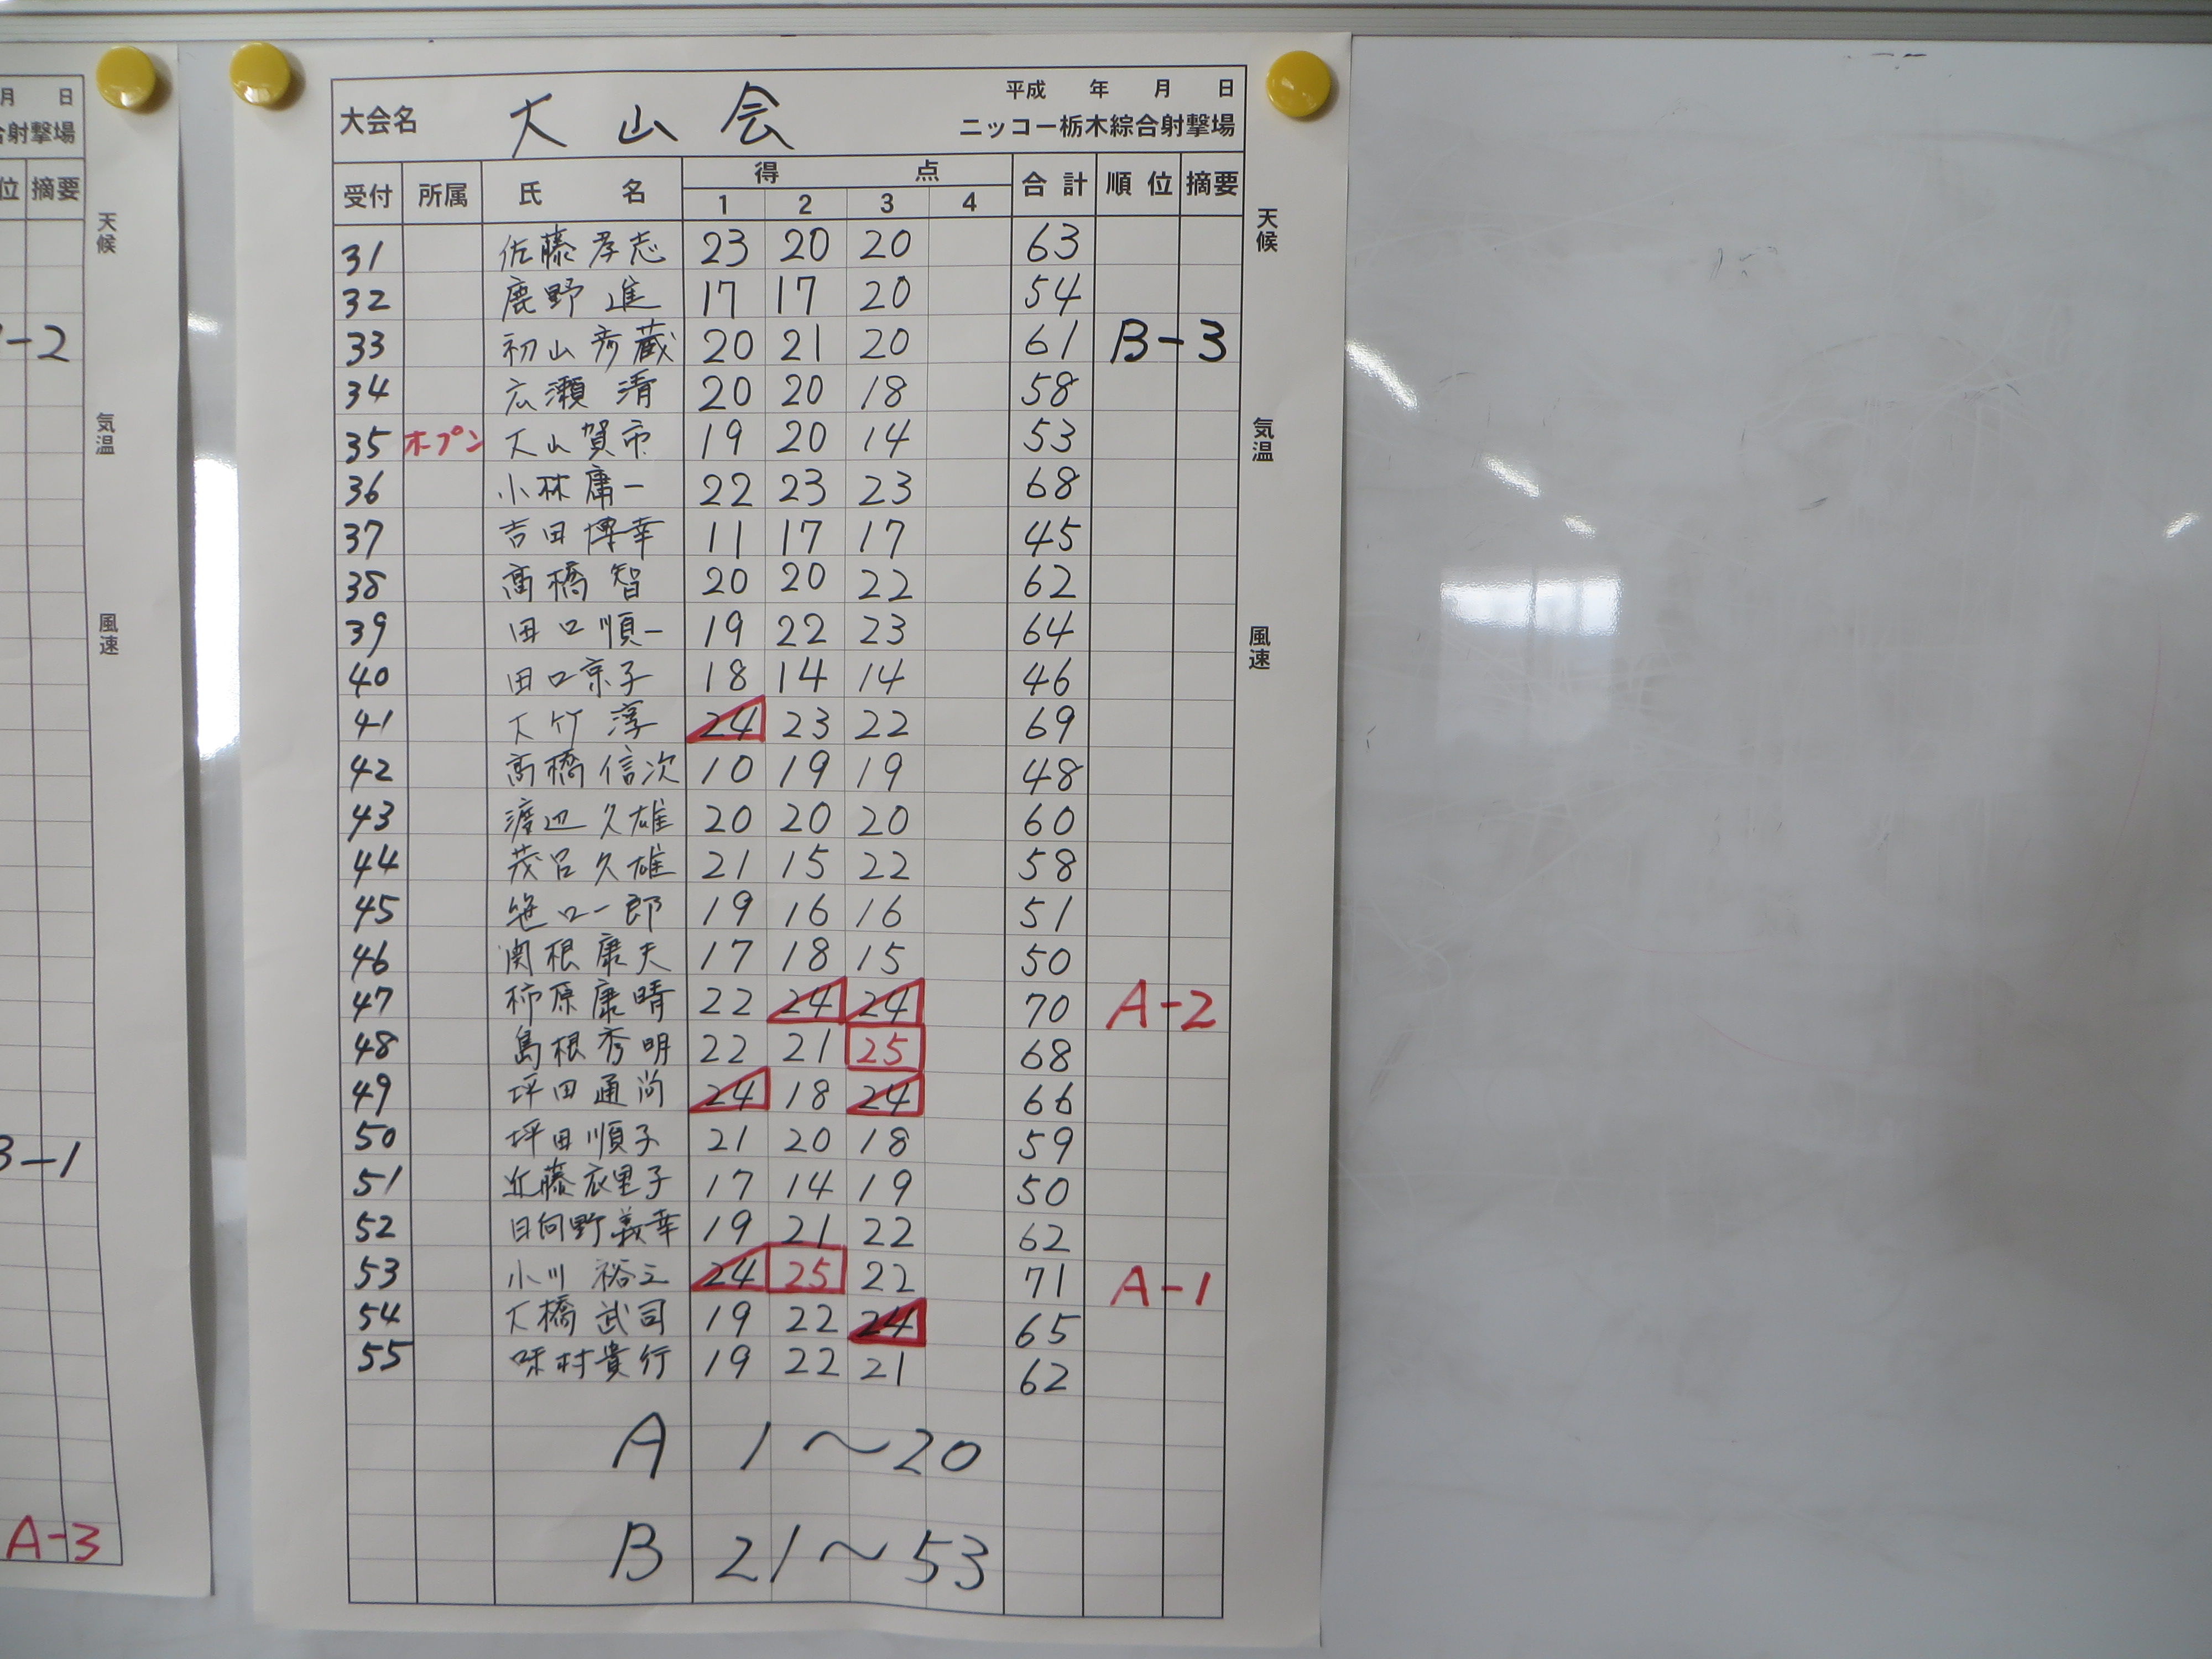 月 日
合射撃場
位 摘要
-2
3-1
A-3
天候
気温
風速
平成 年 月 日
大会名 大山会 ニッコー栃木綜合射撃場
受付 所属 氏名 得点 合計 順位 摘要
1 2 3 4
31 佐藤孝志 23 20 20 63
32 鹿野進 17 17 20 54
33 初山彦蔵 20 21 20 61 B-3
34 広瀬清 20 20 18 58
35 オープン 大山賀市 19 20 14 53
36 小林庸一 22 23 23 68
37 吉田博幸 11 17 17 45
38 髙橋智 20 20 22 62
39 田口順一 19 22 23 64
40 田口京子 18 14 14 46
41 大竹淳 24 23 22 69
42 髙橋信次 10 19 19 48
43 渡辺久雄 20 20 20 60
44 茂呂久雄 21 15 22 58
45 笹口一郎 19 16 16 51
46 関根康夫 17 18 15 50
47 柿原康晴 22 24 24 70 A-2
48 島根秀明 22 21 25 68
49 坪田通尚 24 18 24 66
50 坪田順子 21 20 18 59
51 近藤衣里子 17 14 19 50
52 日向野義幸 19 21 22 62
53 小川裕之 24 25 22 71 A-1
54 大橋武司 19 22 24 65
55 味村貴行 19 22 21 62
A 1～20
B 21～53
天候
気温
風速